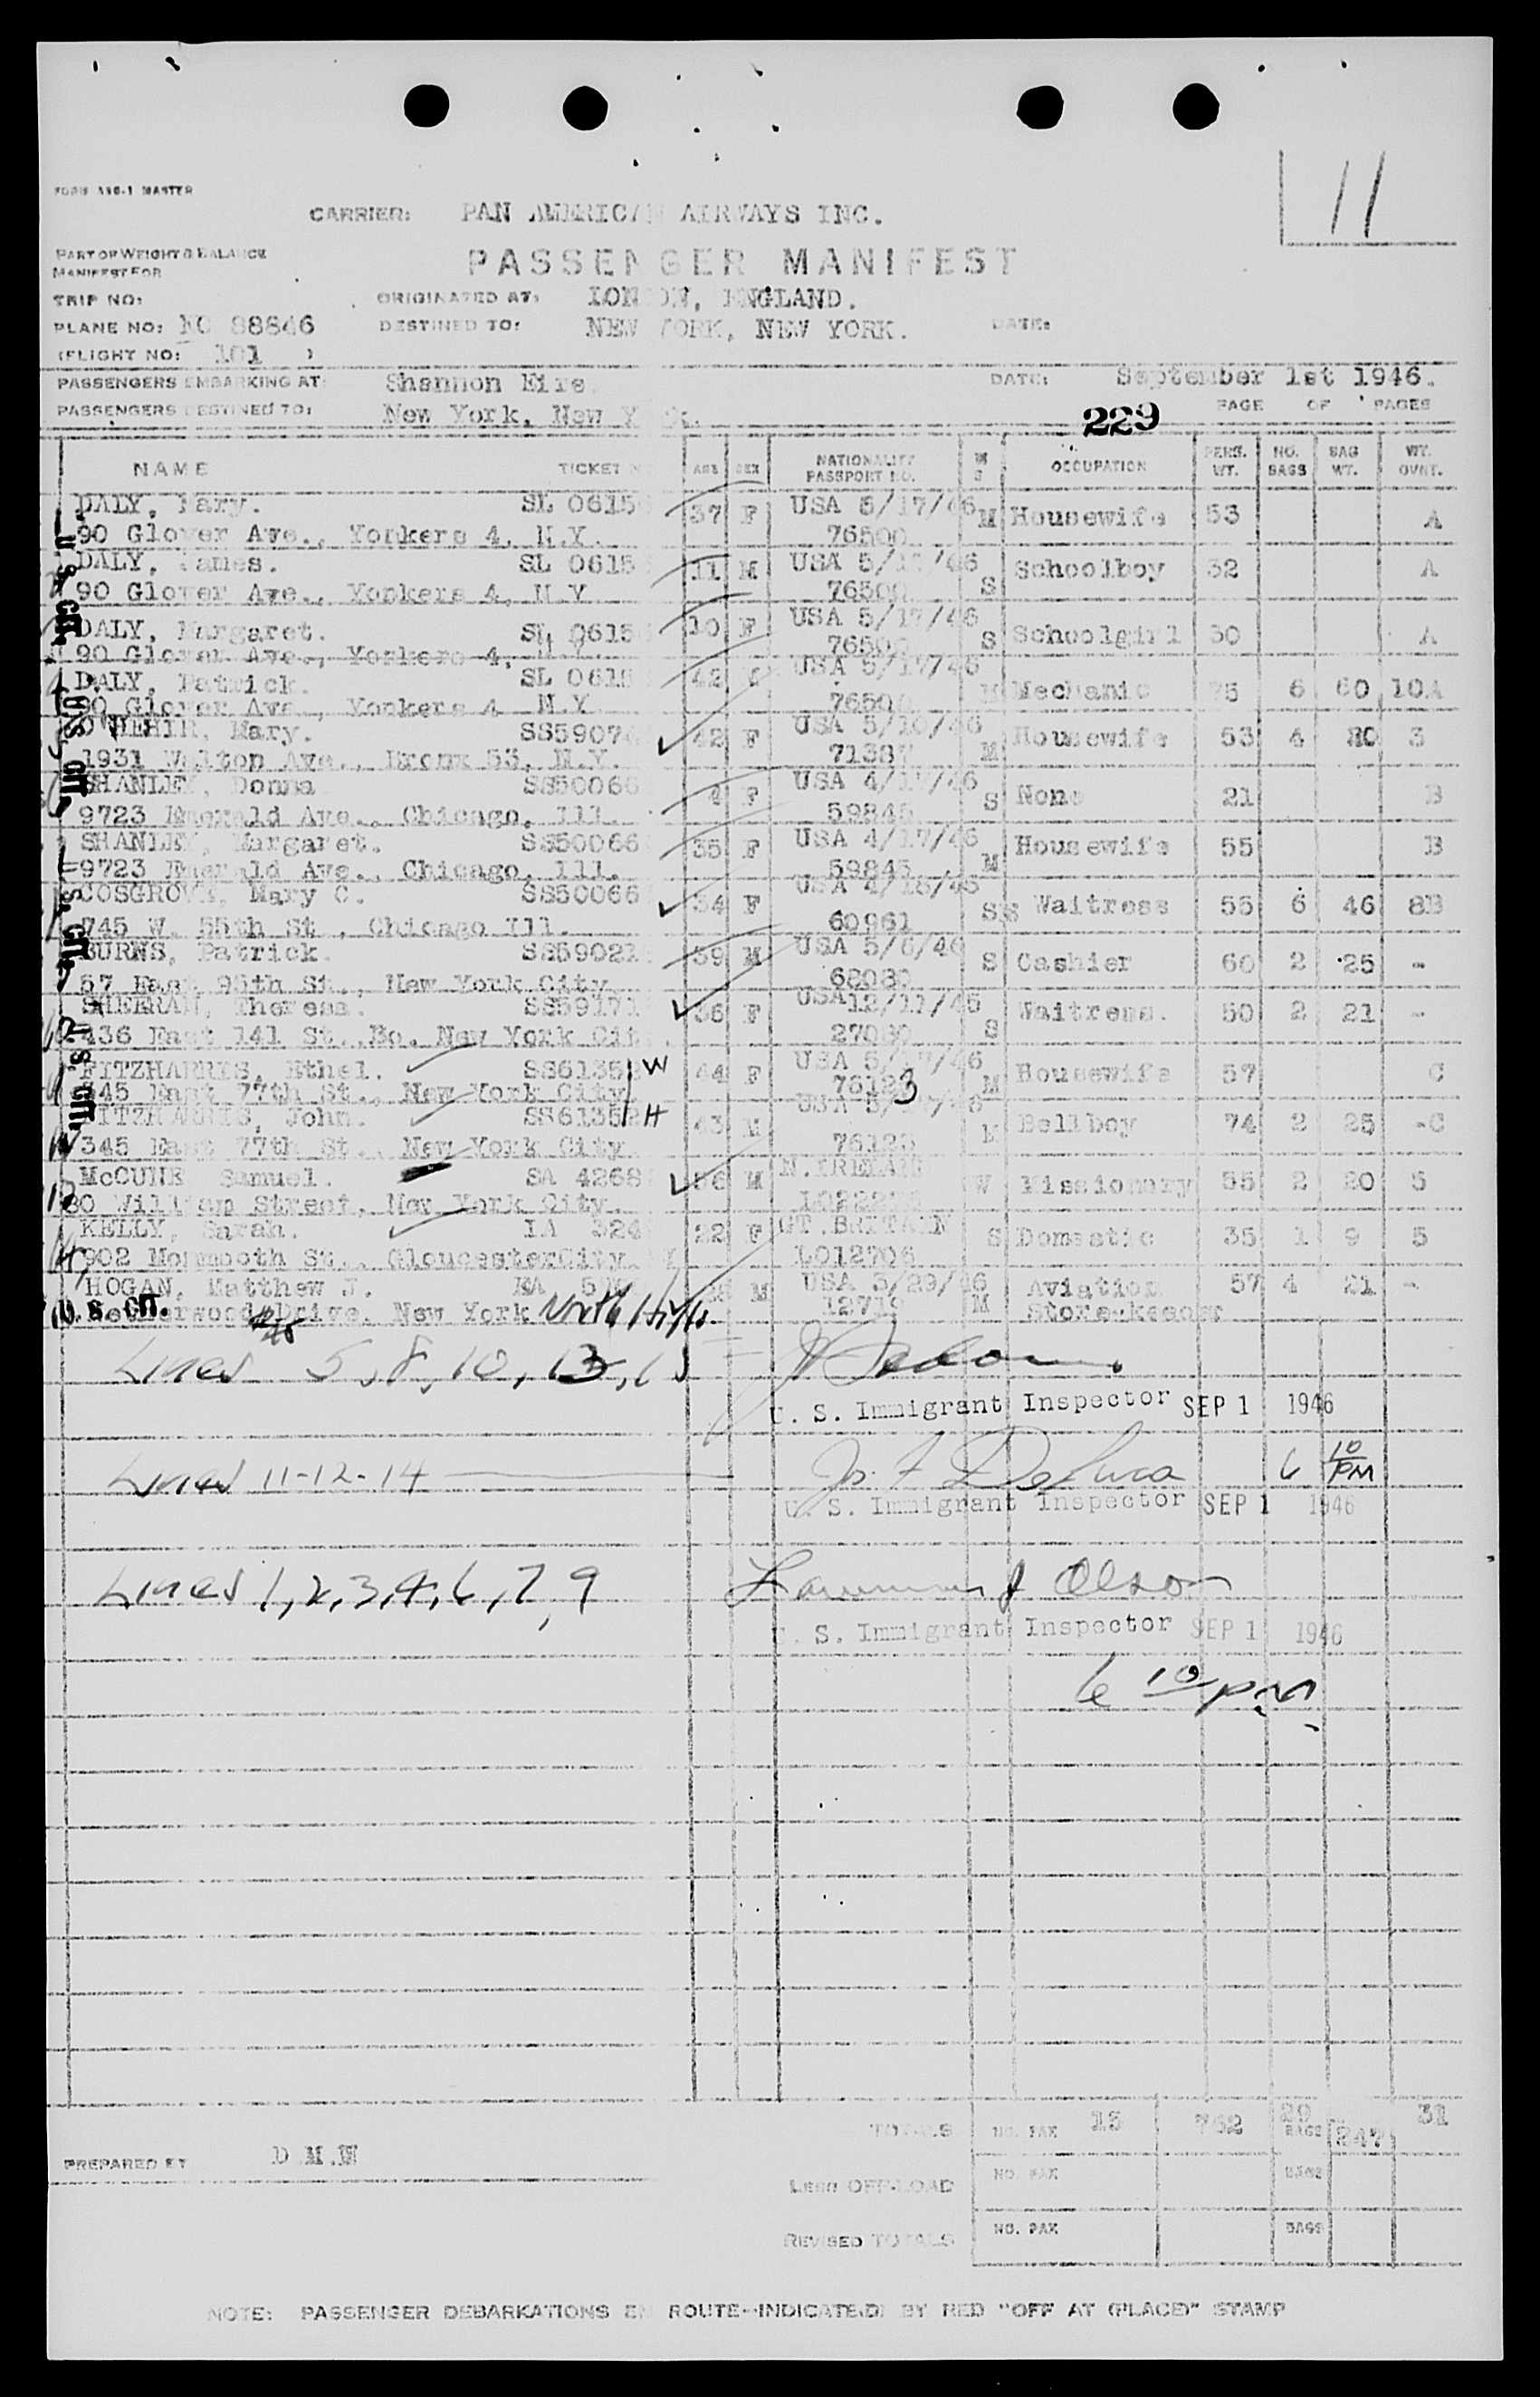 11
FORM 496-1 MASTER
CARRIER: PAN AMERICAN AIRWAYS INC.
PART OF WEIGHT & BALANCE
MANIFEST FOR
PASSENGER MANIFEST
TRIP NO: ORIGINATED AT: LONDON, ENGLAND.
PLANE NO: NC 88846 DESTINED TO: NEW YORK, NEW YORK. DATE:
(FLIGHT NO: 101 )
PASSENGERS EMBARKING AT: Shannon Eire. DATE: September 1st 1946.
PASSENGERS DESTINED TO: New York, New York. 229 PAGE OF PAGES
NAME TICKET NO AGE SEX NATIONALITY PASSPORT NO. M S OCCUPATION PERS. WT. NO. BAGS BAG WT. WT. OVNT.
DALY, Mary. SL 0615 37 F USA 5/17/46 M Housewife 53 A
90 Glover Ave., Yonkers 4, N.Y. 76500
DALY, James. SL 0615 11 M USA 5/17/46 S Schoolboy 32 A
90 Glover Ave., Yonkers 4, N.Y 76500
DALY, Margaret. SL 0615 10 F USA 5/17/46 S Schoolgirl 30 A
90 Glover Ave., Yonkers 4, N.Y. 76500
DALY, Patrick. SL 0615 42 USA 5/17/46 M Mechanic 75 6 60 10A
90 Glover Ave., Yonkers 4 N.Y 76500
O'HEHIR, Mary. SS5907 42 F USA 5/10/46 M Housewife 53 4 80 3
1931 Walton Ave., Bronx 53, N.Y. 71387
SHANLEY, Donna SS50066 4 F USA 4/17/46 S None 21 B
9723 Emerald Ave., Chicago, Ill. 59845
SHANLEY, Margaret. SS50066 35 F USA 4/17/46 M Housewife 55 B
9723 Emerald Ave., Chicago, Ill. 59845
COSGROVE, Mary C. SS50066 34 F USA 4/18/46 S S Waitress 55 6 46 8B
745 W. 55th St., Chicago Ill. 60961
BURNS, Patrick. SS59021 59 M USA 5/6/46 S Cashier 60 2 25 -
57 East 95th St., New York City 68080
SHEERAN, Theresa. SS59171 36 F USA 12/11/45 S Waitress. 50 2 21 -
436 East 141 St., Bo. New York Cit 27080
FITZHARRIS, Ethel. SS61352 W 44 F USA 5/17/46 M Housewife 57 C
345 East 77th St., New York City. 76123
FITZHARRIS, John. SS61352 H 43 M USA 5/17/46 M Bellboy 74 2 25 -C
345 East 77th St., New York City. 76123
McCUNE Samuel. SA 4268 56 M N.IRELAND W Missionary 55 2 20 5
80 William Street, New York City.
KELLY, Sarah. LA 324 22 F GT.BRITAIN S Domestic 35 1 9 5
902 Monmouth St., GloucesterCity. LO12706
HOGAN, Matthew J. M USA 3/29/46 M Aviation 57 4 21 -
Netherwoods Drive, New York North Hills 12719 Store-keeper
U. S. CIT.
U. S. CIT.
U. S. CIT.
U. S. CIT.
U. S. CIT.
Lines 5, 8, 10, 13, 15
U. S. Immigrant Inspector SEP 1 1946
Lines 11-12-14 Jo. F DeLuca 6 10 PM
U. S. Immigrant Inspector SEP 1 1946
Lines 1, 2, 3, 4, 6, 7, 9 Olson
U. S. Immigrant Inspector SEP 1 1946
6 10 PM
TOTALS NO. PAX 15 752 29 BAGS 347 31
PREPARED BY D M.W
Less OFF-LOAD NO. PAX BAGS
REVISED TOTALS NO. PAX BAGS
NOTE: PASSENGER DEBARKATIONS EN ROUTE--INDICATED BY RED "OFF AT (PLACE)" STAMP